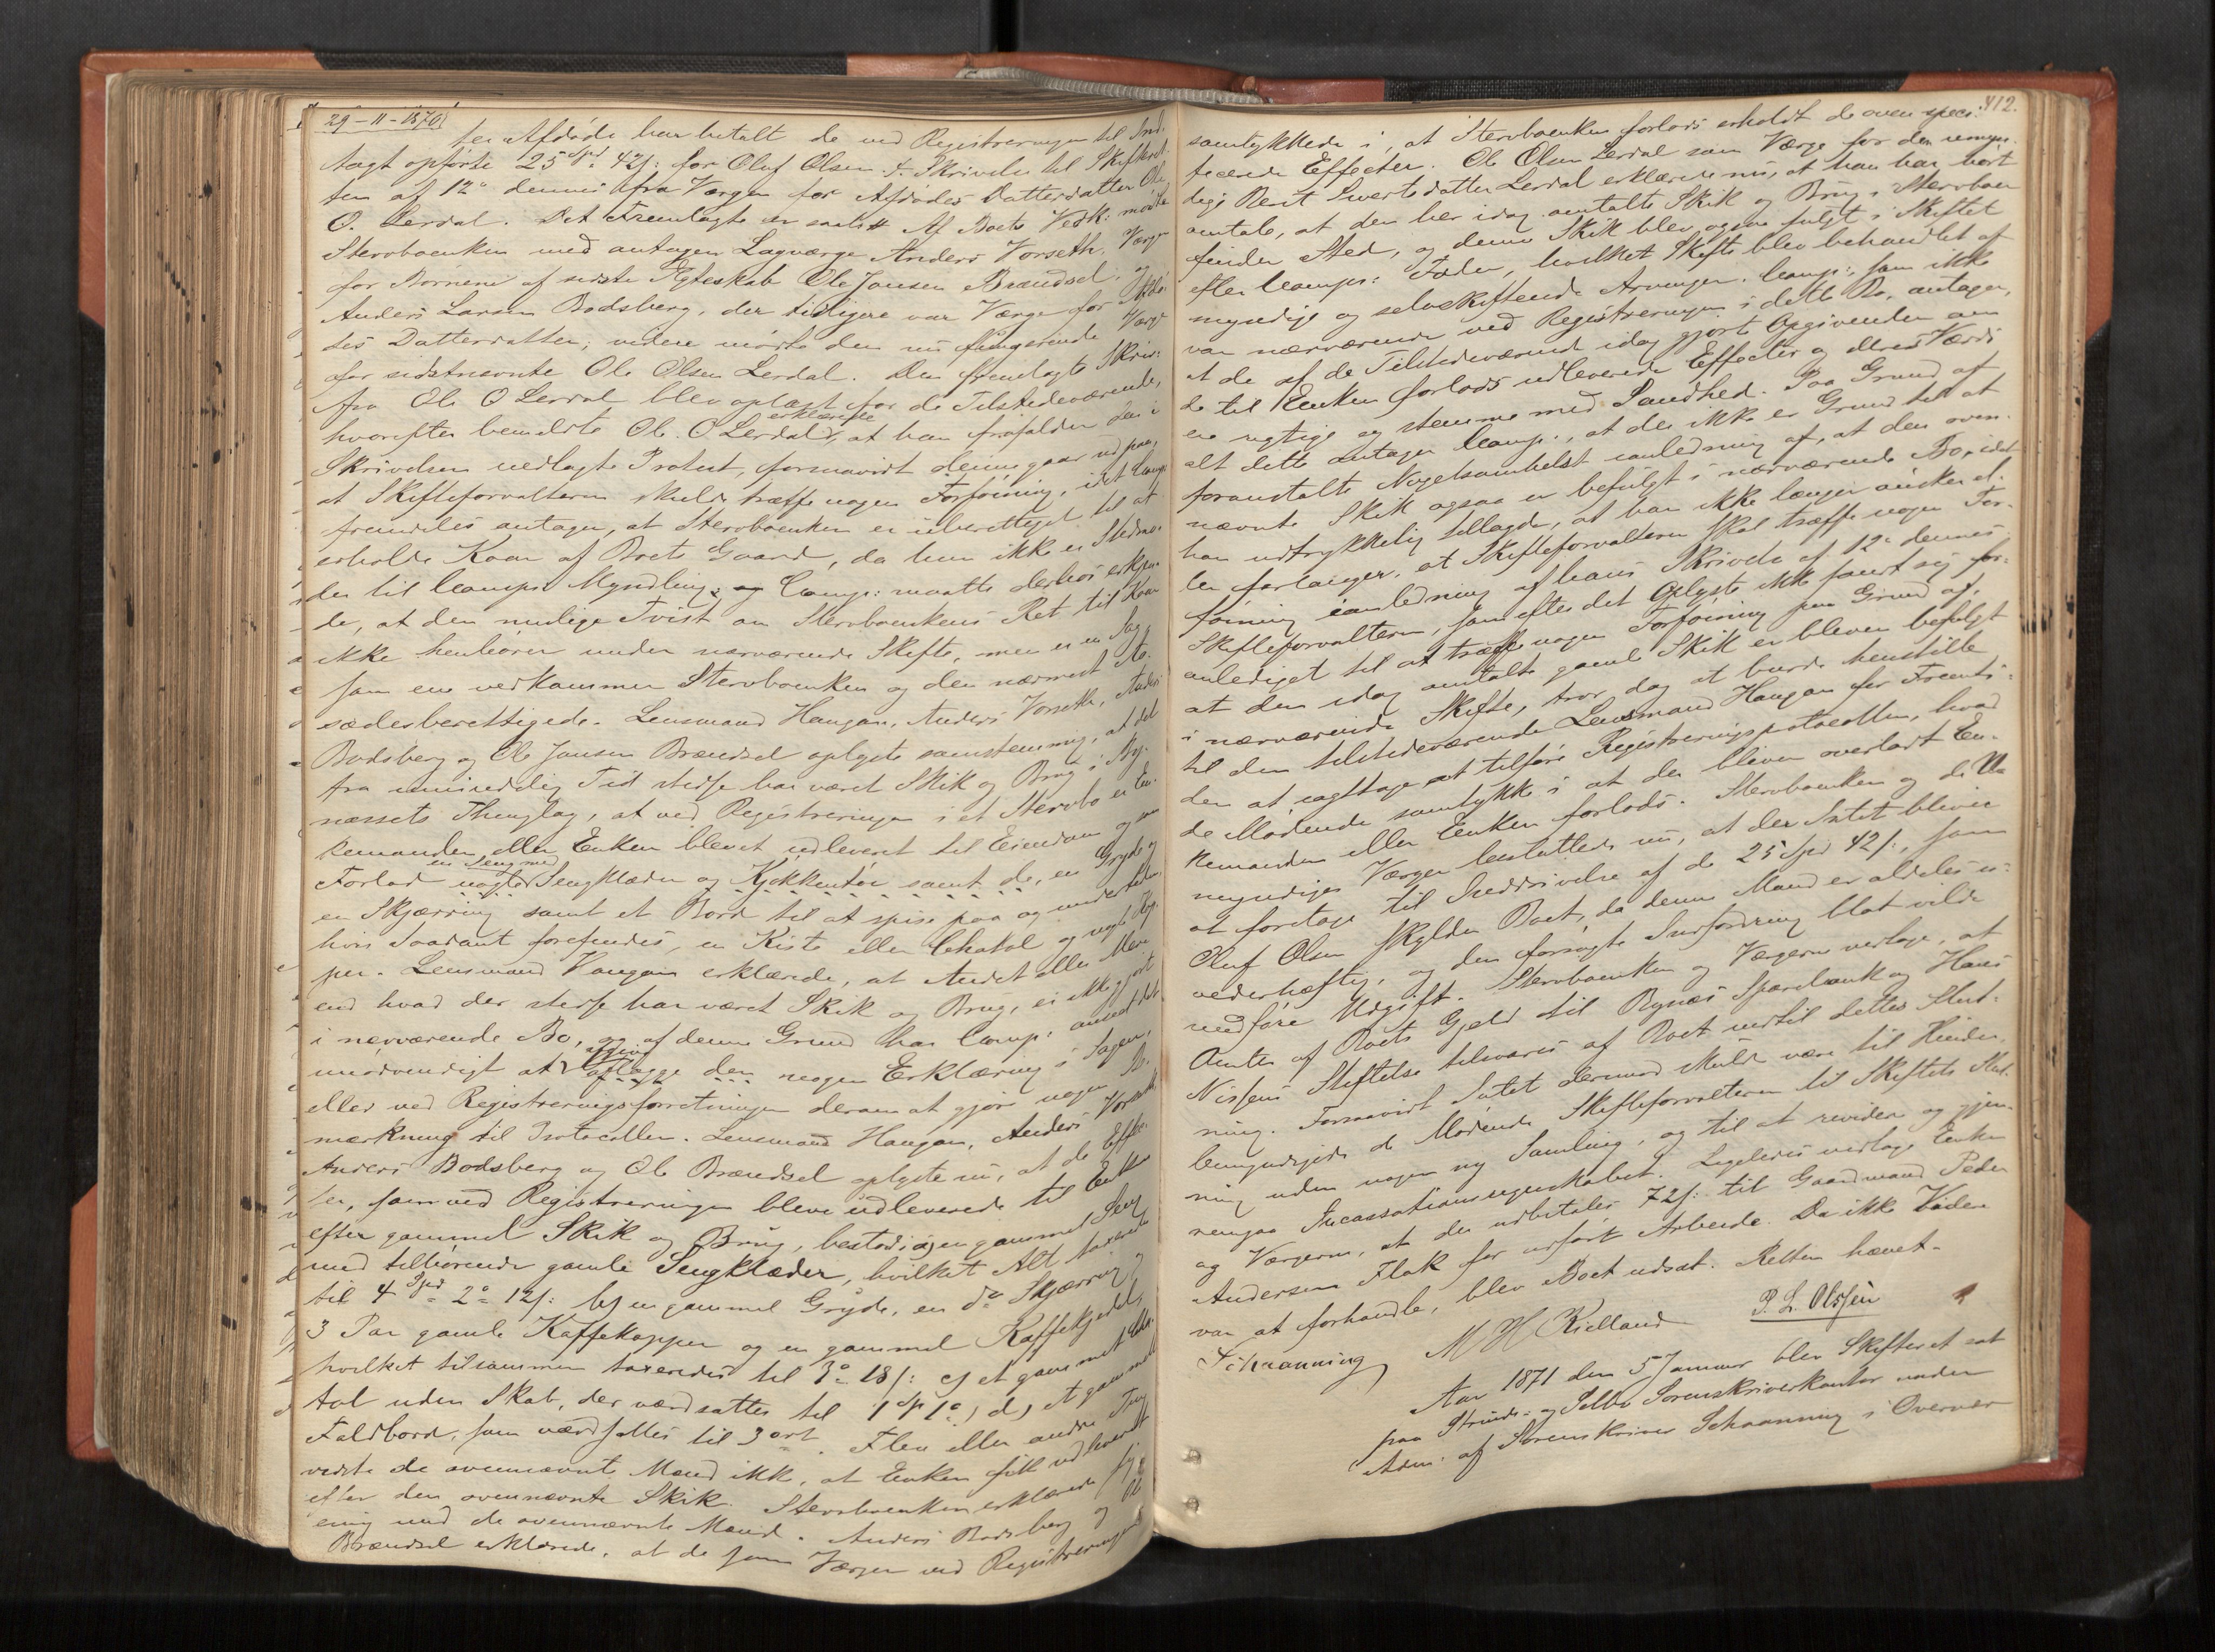 29-11-1870
den Afdøde har betalt de ved Registreringen til Ind-
tægt opførte 25 Spd 42 s: for Oluf Olsen. 4. Skrivelse til Skifteret-
ten af 12te dennes fra Værgen for Afdødes Datterdatter Ole
O. Lerdal. Det Fremlagte er saal: # Af Boets Vedk: mødte
Stervboenken med antagen Lagværge Anders Vorseth. Værge
for Børnene af sidste Egteskab Ole Jonsen Brændsel og
Anders Larsen Bodsberg, der tidligere var Værge for Afdø-
des Datterdatter; videre mødte den nu fungerende Værge
for sidstnævnte Ole Olsen Lerdal. Den fremlagte Skriv:
fra Ole O Lerdal blev oplæst for de Tilstedeværende,
hvorefter bemeldte Ole O Lerdal erklærede, at han frafalder den i
Skrivelsen nedlagte Protest, forsaavidt denne gaar ud paa,
at Skifteforvalteren skulde træffe nogen Forføining, idet Comp:
fremdeles antager, at Stervboenken er uberettiget til at
erholde Kaar af Boets Gaard, da hun ikke er Stedmo-
der til Comps: Myndling, og Comp: maatte derhos erkjen-
de, at den mulige Tvist om Stervboenkens Ret til Kaar
ikke henhører under nærværende Skifte, men er en Sag,
som ene vedkommer Stervboenken og den nærmest Aa-
sædesberettigede. Lensmand Haugan, Anders Vorseth, Anders
Bodsberg og Ole Jonsen Brændsel oplyste samstemmig, at det
fra umindelig Tid stedse har været Skik og Brug i By-
næssets Thinglag, at ved Registreringen i et Stervbo er En-
kemanden eller Enken blevet udleveret til Eiendom og som
Forlod en Seng med nogle Sengklæder og Kjøkkentøi samt de, en Gryde og
en Skjærring samt et Bord til at spise paa og undertiden,
hvis Saadant forefindes, en Kiste eller Chatol og nogle Kop-
per. Lensmand Haugan erklærede, at Andet eller Mere
end hvad der stedse har været Skik og Brug, ei ikke gjort
i nærværende Bo, og af denne Grund har Comp: anseet det
unødvendigt at afgive aflægge den nogen Erklæring i Sagen,
eller ved Registreringsforretningen derom at gjøre nogen Be-
mærkning til Protocollen. Lensmand Haugan, Anders Vorseth
Anders Bodsberg og Ole Brændsel oplyste nu, at de Effec-
ter, som ved Registreringen bleve udleverede til Enken
efter gammel Skik og Brug, bestod i a) en gammel Seng
med tilhørende gamle Sengklæder, hvilket Alt taxeredes
til 4 Spd 2 o 12 s: b) en gammel Gryde, en do Skjærring og
3 Par gamle Kaffekopper og en gammel Kaffekjedel,
hvilket tilsammen taxeredes til 3 o 18 s: c) et gammelt Cha-
tol uden Skab, der værdsattes til 1 Sp 1 o, d) et gammelt
Foldbord, som værdsattes til 3 ort. Flere eller andre Ting
vidste de ovennævnte Mænd ikke, at Enken fik udleveret
efter den ovennævnte Skik. Stervboenken erklærede sig
enig med de ovennævnte Mænd. Anders Bodsberg og Ole
Brændsel erklærede, at de som Værger ved Registreringen
412.
samtykkede i, at Stervboenken forlods erholdt de oven speci-
ficerede Effecter. Ole Olsen Lerdal som Værge for den umyn-
dige Berit Sivertsdatter Lerdal erklærede nu, at han har hørt
omtale, at den her idag omtalte Skik og Brug i Stervboer
finder Sted, og denne Skik blev ogsaa fulgt i Skiftet
efter Comps: Fader, hvilket Skifte blev behandlet af
myndige og selvskiftende Arvinger. Comp:, som ikke
var nærværende ved Registreringen i dette Bo, antager,
at de af de Tilstedeværende idag gjorte Opgivender om
de til Enken forlods udleverede Effecter og disses Værdi
ere rigtige og stemme med Sandhed. Paa Grund af
alt dette antager Comp:, at der ikke er Grund til at
foranstalte Nogetsomhelst i anledning af, at den oven-
nævnte Skik ogsaa er befulgt i nærværende Bo, idet
han udtrykkelig tillagde, at han ikke længer ønsker el-
ler forlanger, at Skifteforvalteren skal træffe nogen For-
føining i anledning af hans Skrivelse af 12te dennes
Skifteforvalteren, som efter det Oplyste ikke fandt sig for-
anlediget til at træffe nogen Forføining paa Grund af,
at den idag omtalte gamle Skik er bleven befulgt
i nærværende Skifte, tror dog at burde henstille
til den tilstedeværende Lensmand Haugan for Fremti-
den at iagttage at tilføre Registreringsprotocollen, hvad
de Mødende samtykke i at der bliver overladt En-
kemanden eller Enken forlods. Stervboenken og de U-
myndiges Værger besluttede nu, at der Intet bliver
at foretage til Inddrivelse af de 25 Spd 42 s:, som
Oluf Olsen skylder Boet, da denne Mand er aldeles u-
vederhæftig, og den forsøgte Indfordring blot vilde
medføre Udgift. Stervboenken og Værgerne vedtoge, at
Renter af Boets Gjeld til Bynæs Sparebank og Hans
Nissens Stiftelse tilsvares af Boet indtil dettes Slut-
ning. Forsaavidt Intet dermod skulde være til Hinder,
bemyndigede de Mødende Skifteforvalteren til Skiftets Slut-
ning uden nogen ny Samling, og til at revidere og gjen-
nemgaa Incassationsregnskabet. Ligeledes vedtoge Enken
og Værgerne, at der udbetales 72 s: til Gaardmand Peder
Andersen Flak for udført Arbeide. Da ikke Videre
var at forhandle, blev Boet udsat. Retten hævet.
Schanning M H Kielland P. L. Olssen
Aar 1871 den 5 Januar blev Skifteret sat
paa Strinde- og Selbo Sorenskriverkontor under
Adm: af Sorenskriver Schanning i Overvær